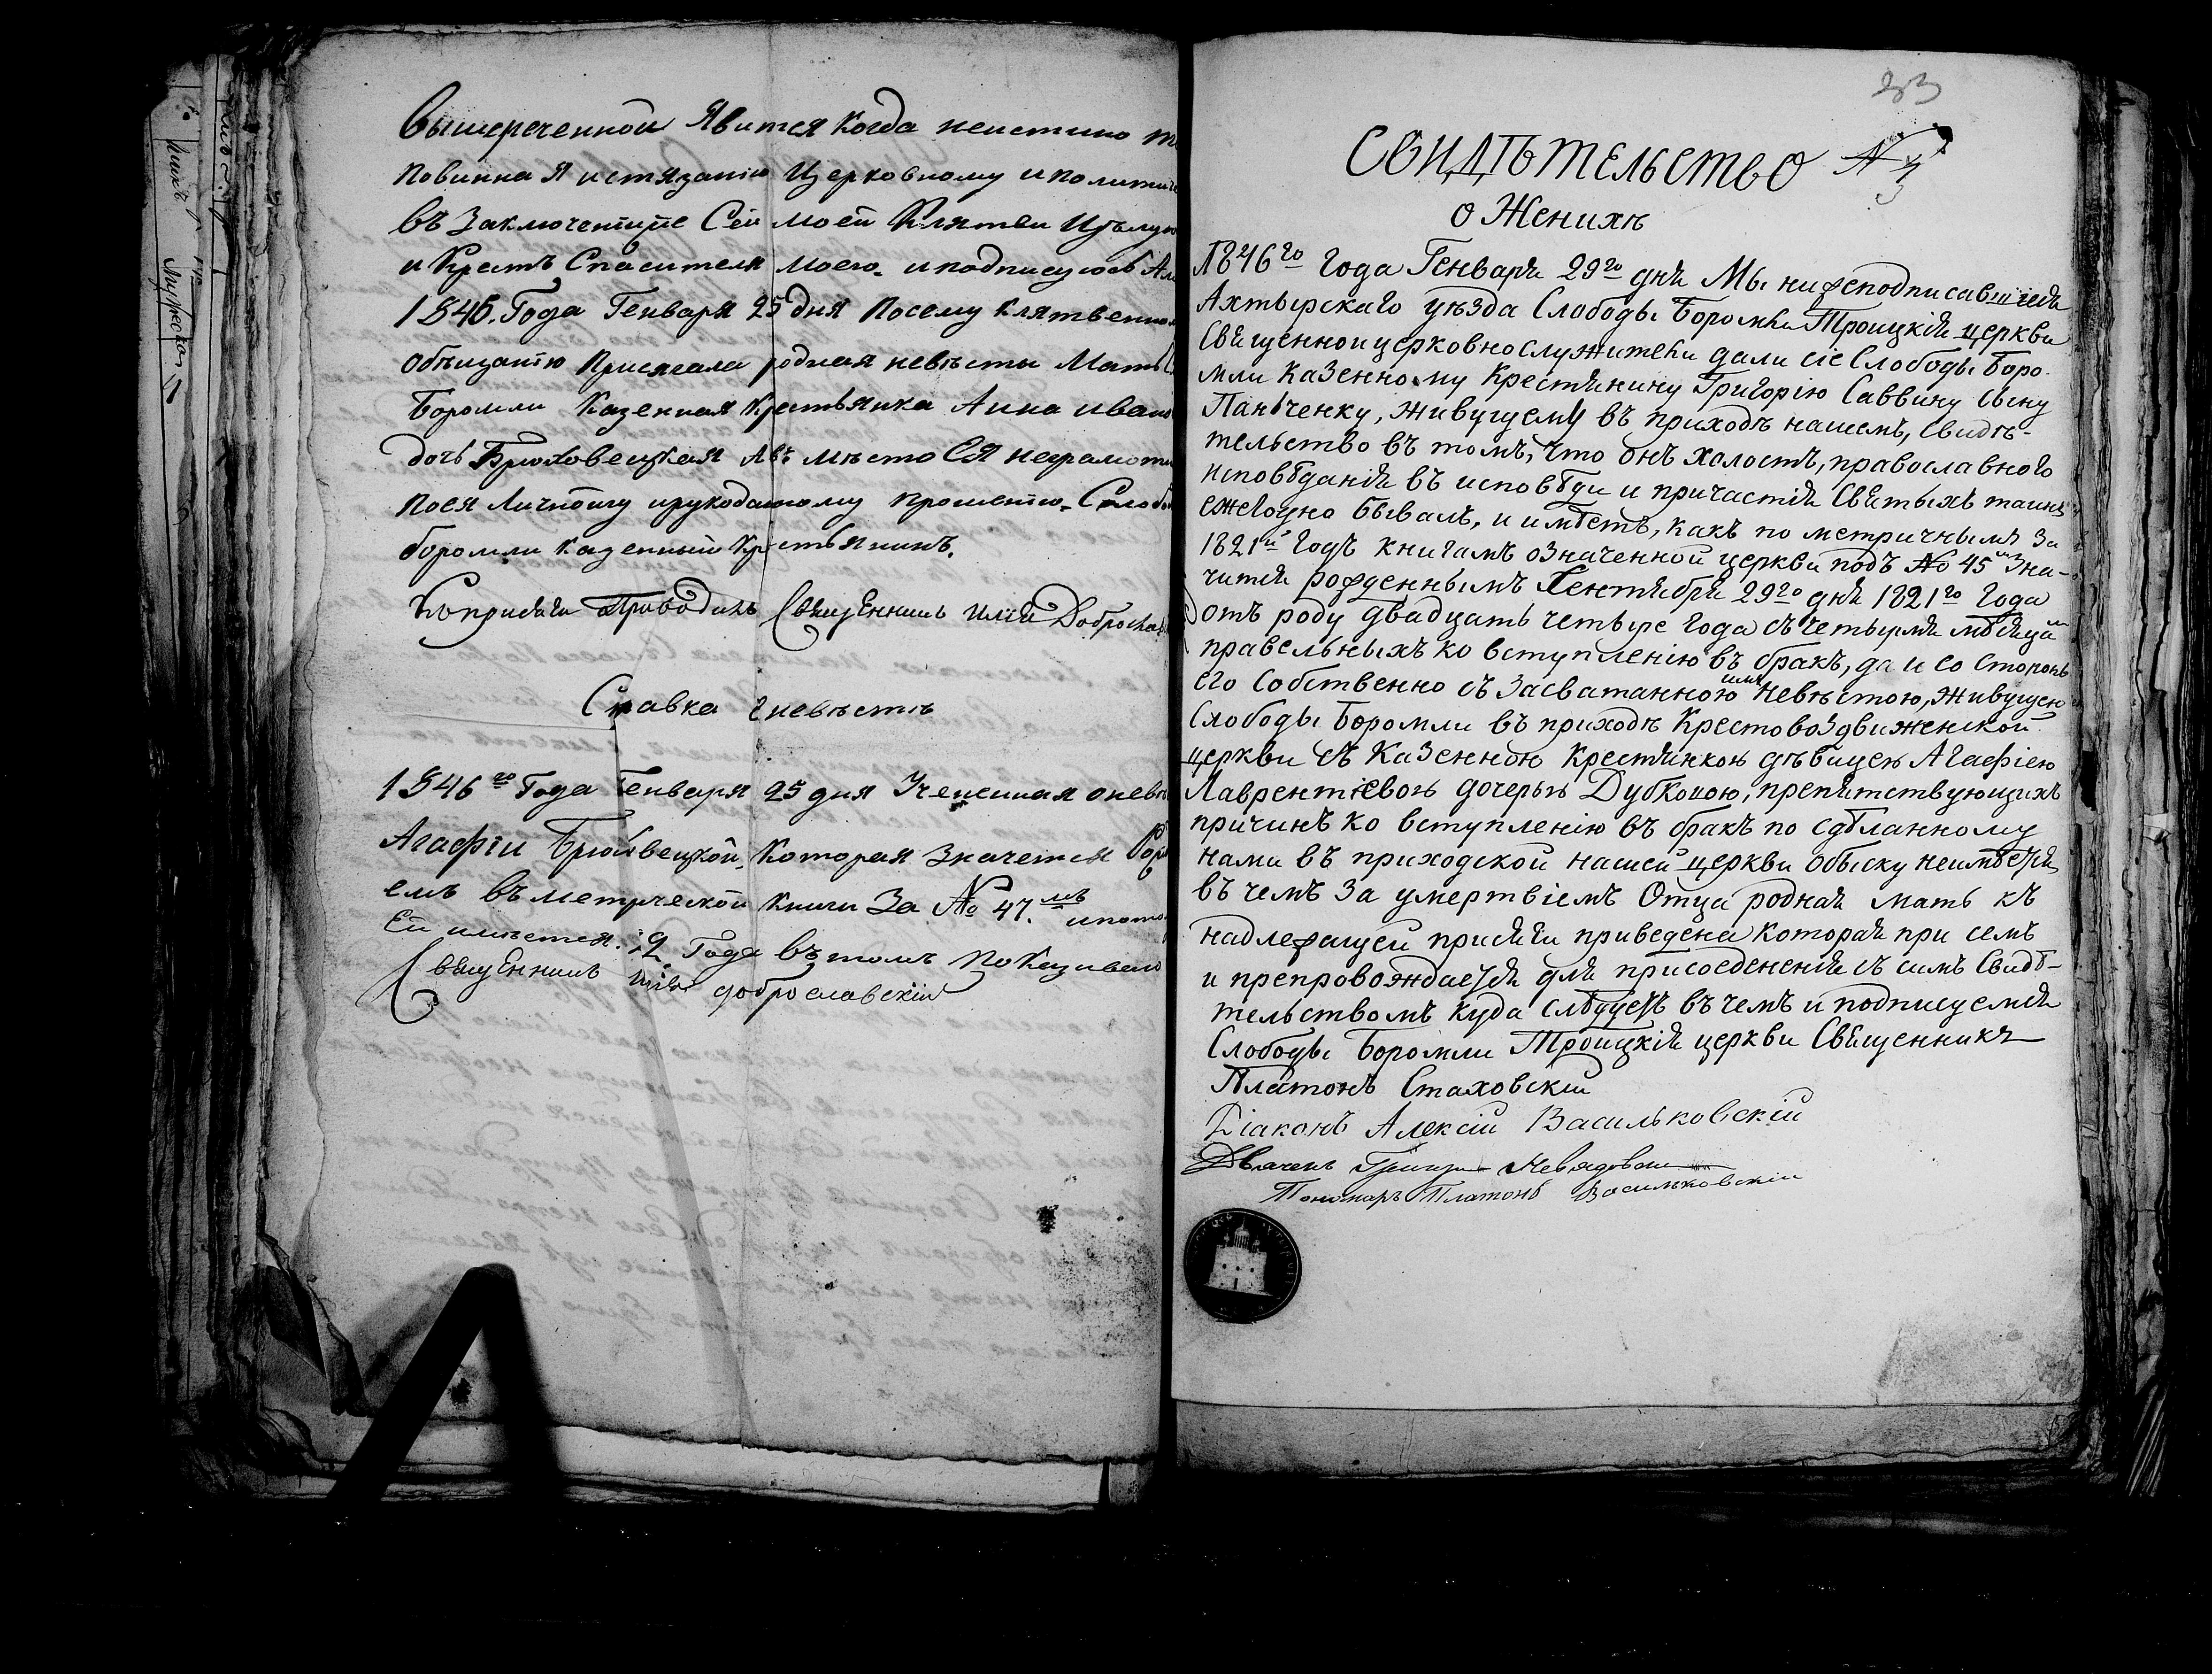 вышереченной Явится когда неистино
повинна Я истязанію Церковному и полити
въ Заключенїи Сей моей Клятвы Цѣлую
и Крестъ Спасителя моего. и подписуюсь
1846. Года Генваря 25 дня Посему клятвенно
обѣщанїю Присягала родная невѣсты Мать
Боромли Казенная Крестьянка Анна Ивано
дочь Брюховецкая Авъ мѣсто Ея неграмотн
поея личному ирукоданному прошенїю. Слобо
боромли казенный Крестьянинъ.
Къ присяги Приводилъ Священникъ Илія Доброслав
Справка о невѣстѣ
1846го Года Генваря 25 дня Учененная о невѣ
Агафіи Брюховецкой. Которая Значется Ро
емъ въ метрической Книги За № 47.мъ ипото
Ей имѣется. 19. Года въ томъ показиваю
Священникъ Илія доброславскій
33
СВИДѢТЕЛЬСТВО № 3
о Женихѣ
1846го Года Генваря 29го дня Мы нижеподписавшиеся
Ахтырскаго уѣзда Слободы Боромли Троицкія церкви
Священноицерковнослужители дали сіе Слободы Боро-
мли Казенному Крестянину Григорію Саввину Сыну
Панченку, живущему въ приходѣ нашемъ, Свидѣ-
тельство въ томъ, что онъ холостъ, православного
исповѣданія въ исповѣди и причастія Святыхъ таинъ
ежегодно бывалъ, и имѣетъ, какъ по метричнымъ За
1821й Годъ книгамъ означенной церкви подъ № 45мъ Зна-
чится рожденнымъ Сентября 29го дня 1821го Года
отъ роду двадцать четыре года съ четырмя мѣсяца
правельныхъ ко вступленію въ бракъ, да и со стороны
его Собственно съ Засватанною имъ невѣстою, живущею
Слободы Боромли въ приходѣ Крестовоздвиженской
церкви съ Казенною Крестянкою дѣвицею Агафіею
Лаврентіевою дочерью Дубковою, препятствующихъ
причинъ ко вступленію въ бракъ по сдѣланному
нами въ приходской нашей церкви обыску неимѣется
въ чемъ За умертвіемъ Отца родная мать къ
надлежащей присяги приведена которая при семъ
и препровождается для присоедененія съ симъ Свидѣ-
тельствомъ куда слѣдуетъ въ чемъ и подписуемся
Слободы Боромли Троицкія церкви Священникъ
Платонъ Стаховскій
Діаконъ Алексій Васильковскій
Дьячекъ
Пономарь Платонъ Васильковскій